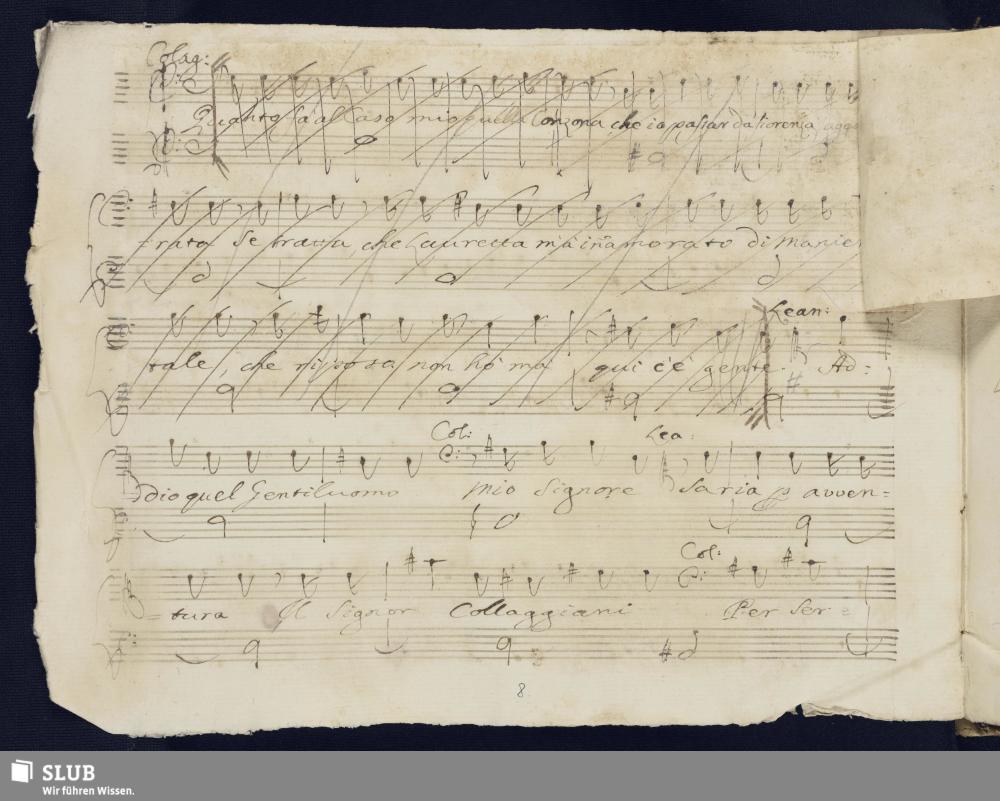 Colag:
Quanto fa al Caso mio quella Canzona che io passar da fiorenza aggi
-rata se tratta che Lauretta m'à innamorato di manie
Lean:
tale, che riposta non hò ma qui c'è gente. Ad=
Col: Lea:
=dio quel Gentiluomo Mio Signore Saria p avven=
Col:
=tura Il Signor Collaggiani Per Ser=
8
SLUB
Wir führen Wissen.